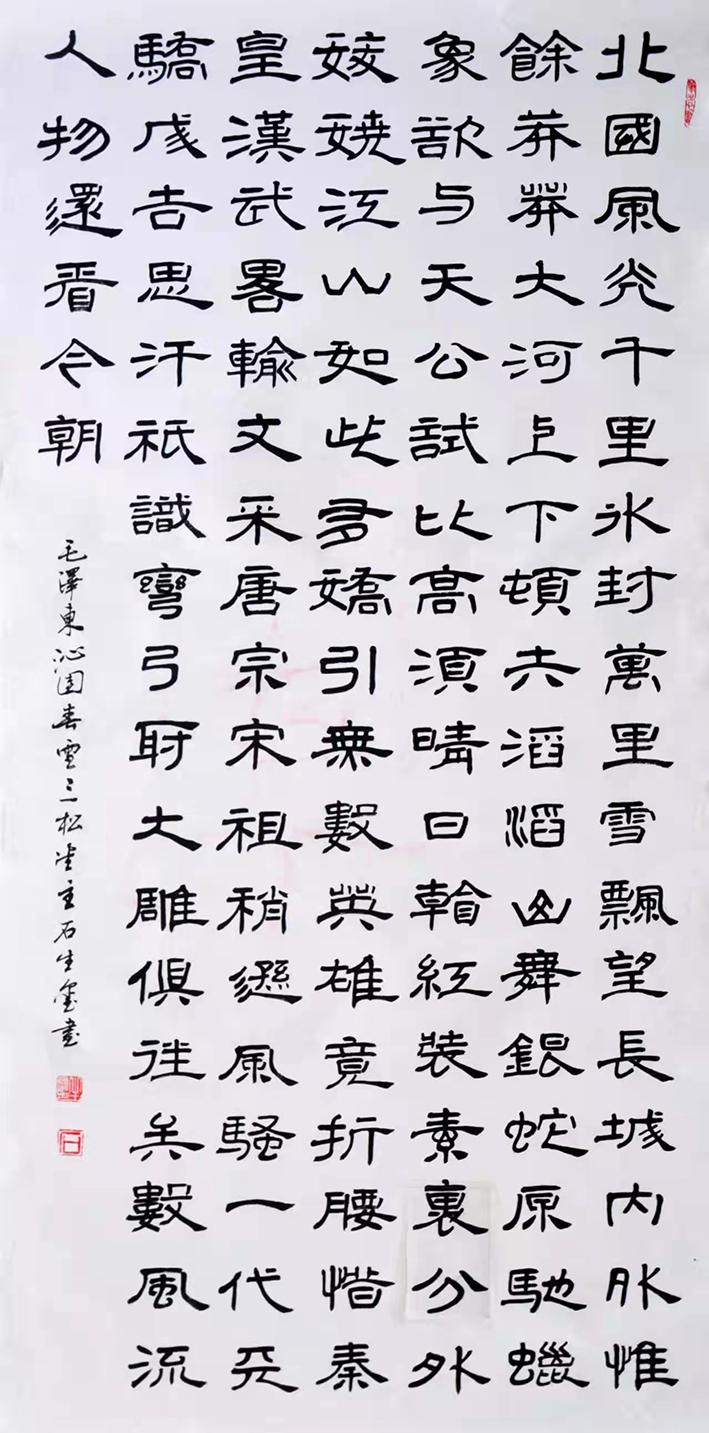 北國風光千里冰封萬里雪飄望長城内外惟
餘莽莽大河上下頓失滔滔山舞銀蛇原馳蠟
象欲与天公試比高須晴日看紅裝素裹分外
妖嬈江山如此多嬌引無數英雄竟折腰惜秦
皇漢武畧輸文采唐宗宋祖稍遜風騷一代天
驕成吉思汗祇識彎弓射大雕俱往矣數風流
人物還看今朝
毛澤東沁園春雪三松堂主石生玺書